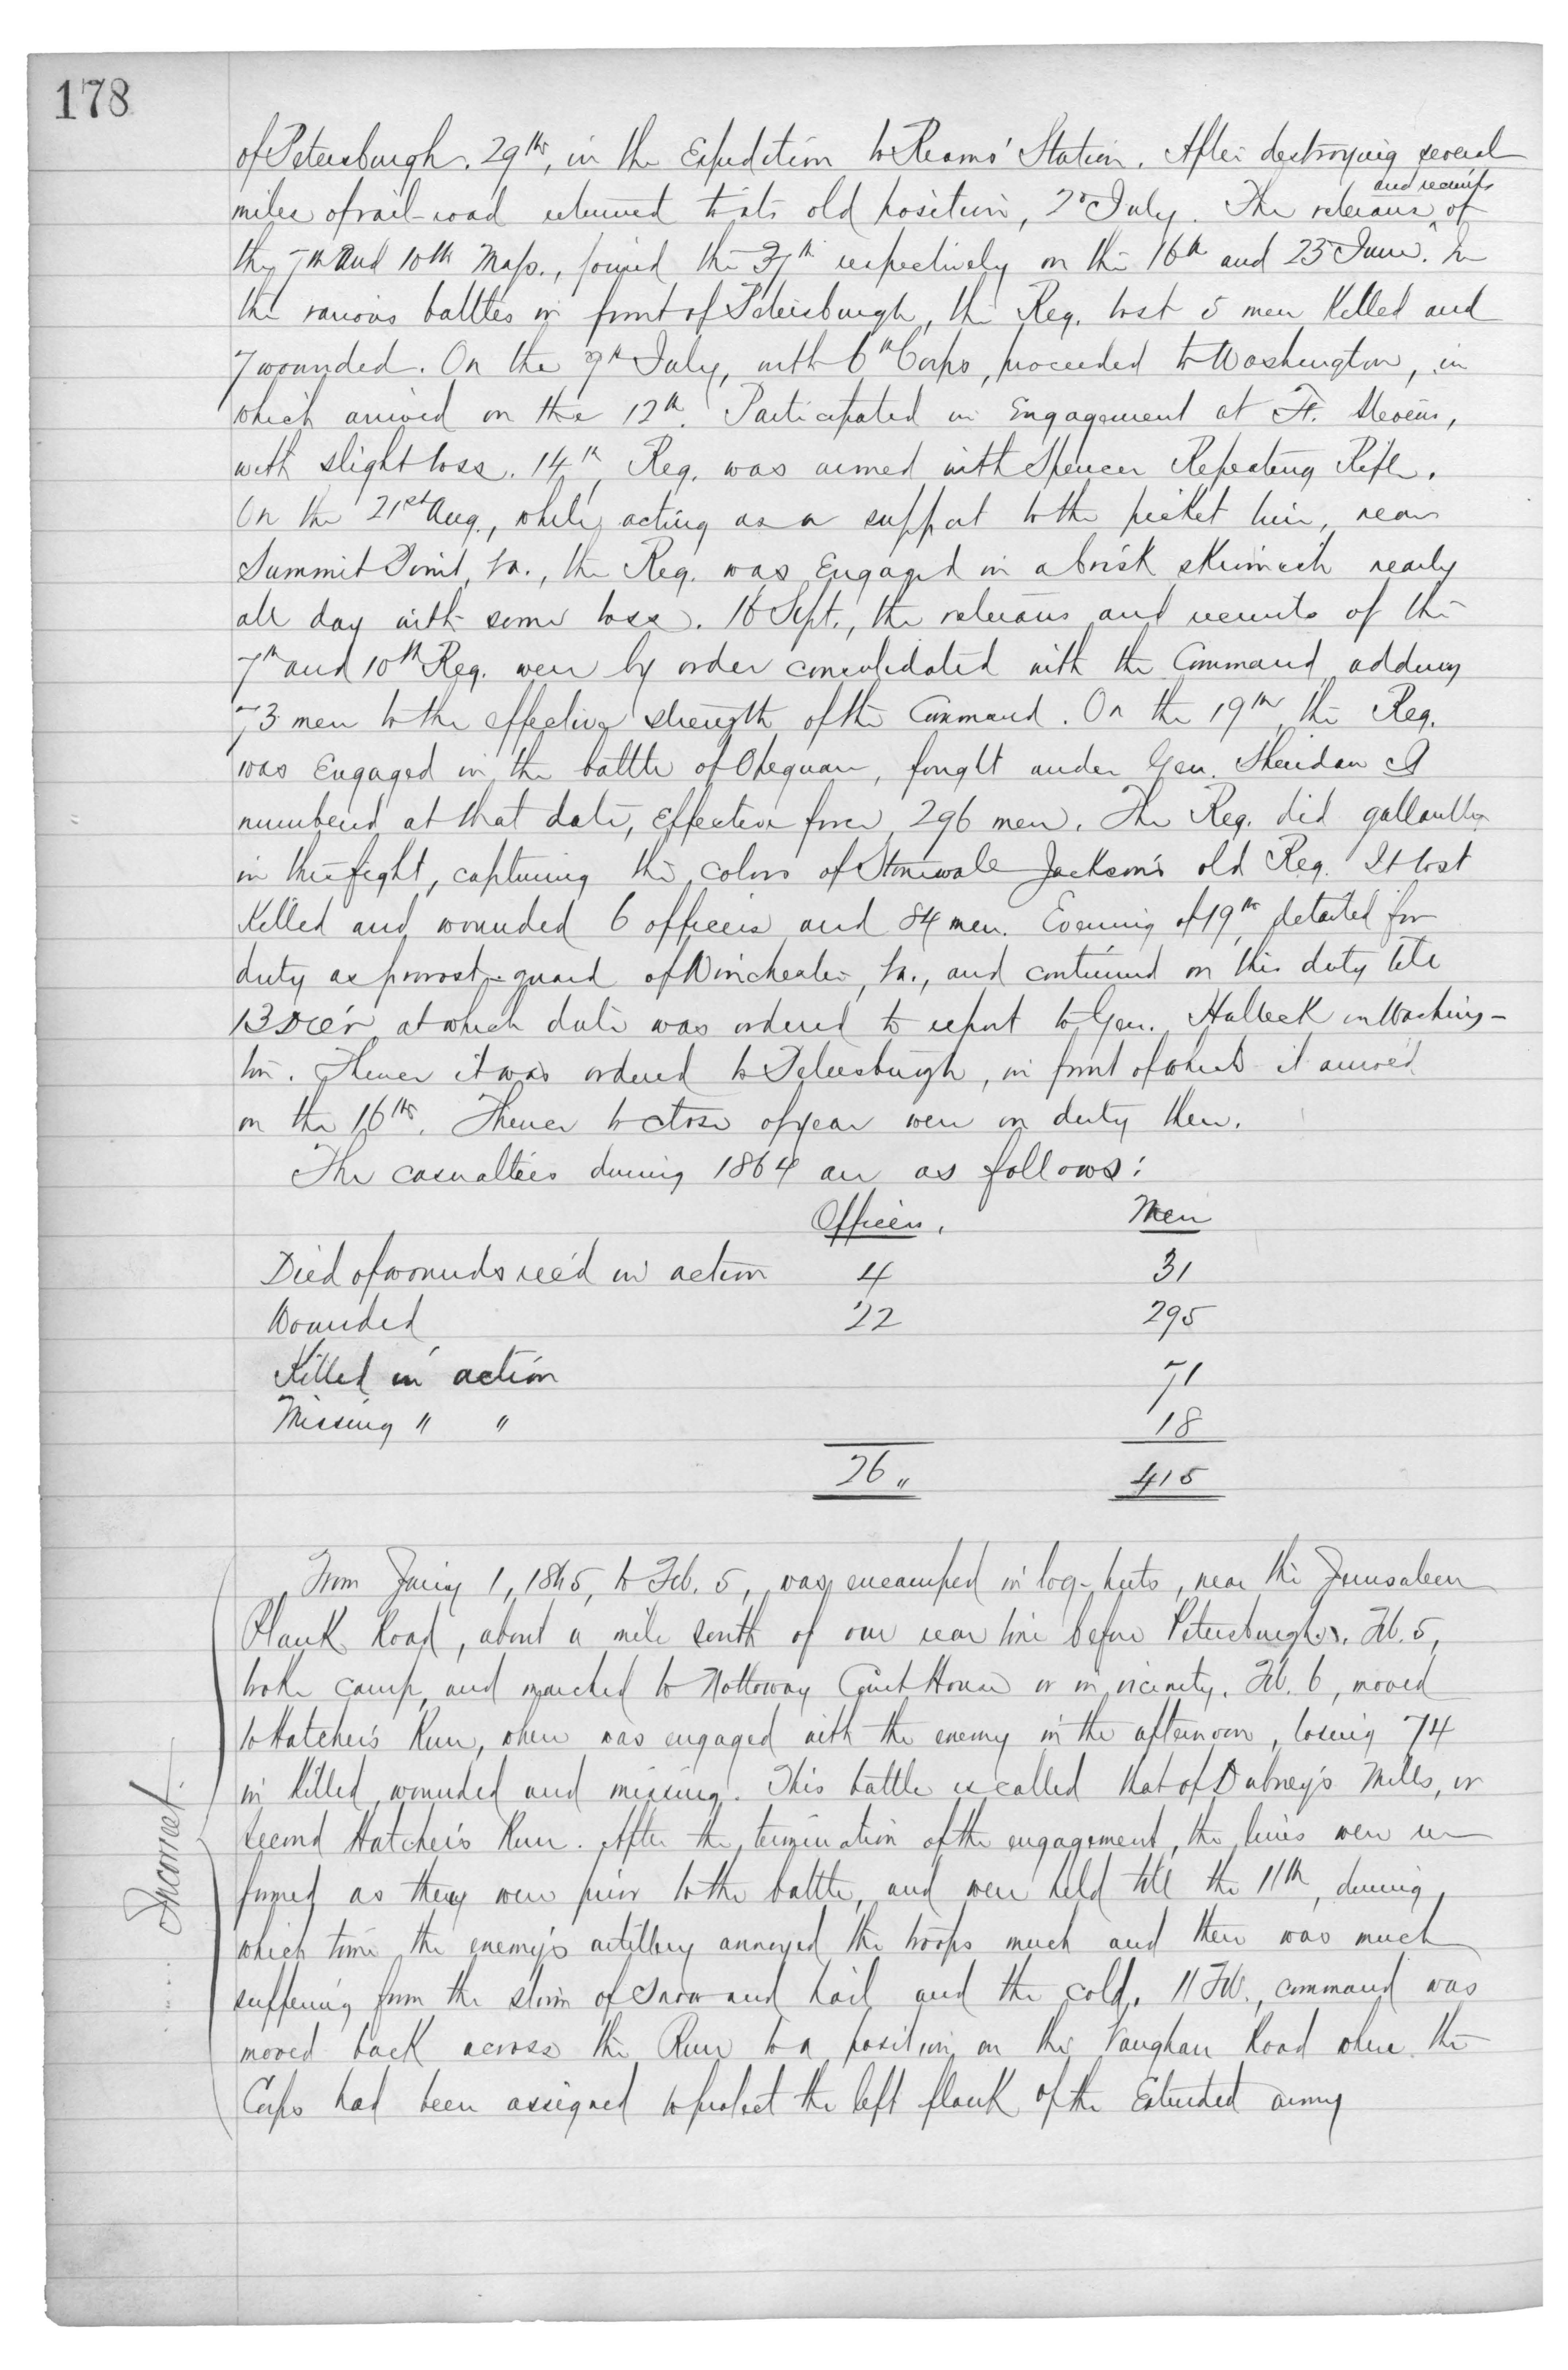 178
of Petersburgh. 29th, in the Expedition to Reams' Station. After destroying several
and recruits
miles of rail-road returned to its old position, 2d July. The veterans ^ of
the 7th and 10th Mass., joined the 37th respectively on the 16th and 23 June. In
the various battles in front of Petersburgh, the Reg. lost 5 men killed and
7 wounded. On the 9th July, with 6th Corps, proceeded to Washington, in
which arrived on the 12th. Participated in Engagement at Ft. Stevens,
with slight loss. 14th, Reg. was armed with Spencer Repeating Rifle.
On the 21st Aug., while acting as a support to the picket line, near
Summit Point, Va., the Reg. was Engaged in a brisk skirmish nearly
all day with some loss. 16 Sept., the veterans and recruits of the
7th and 10th Reg. were by order consolidated with the Command adding
73 men to the effective strength of the Command. On the 19th, the Reg.
was Engaged in the battle of Opequan, fought under Gen. Sheridan It
numbered at that date, Effective force, 296 men. The Reg. did gallantly
in the fight, capturing the colors of Stonewall Jackson's old Reg. It lost
killed and wounded 6 officers and 84 men. Evening of 19th, detailed for
duty as provost-guard of Winchester, Va., and continued on this duty till
13 Dec'r at which date was ordered to report to Gen. Halleck in Washing-
ton. Thence it was ordered to Petersburgh, in front of which it arrived
on the 16th. Thence to close of year were on duty there.
The casualties during 1864 are as follows:
Officers. Men
Died of wounds rec'd in action 4 31
Wounded 22 295
Killed in action 71
Missing " " 18
26 " 415
From Jan'y 1, 1865, to Feb. 5, was encamped in log-huts, near the Jerusalem
Plank Road, about a mile south of our rear line before Petersburgh. Feb. 5,
broke camp, and marched to Nottoway Court House or in vicinity. Feb. 6, moved
to Hatcher's Run, where was engaged with the enemy in the afternoon, losing 74
in killed, wounded and missing. This battle is called that of Dabney's Mills, or
Second Hatcher's Run. After the termination of the engagement, the lines were re-
formed as they were prior to the battle, and were held till the 11th, during
which time the enemy's artillery annoyed the troops much and there was much
suffering from the storm of snow and hail and the cold. 11 Feb., command was
moved back across the Run to a position on the Vaughan Road where the
Corps had been assigned to protect the left flank of the Extended army
Incorrect.